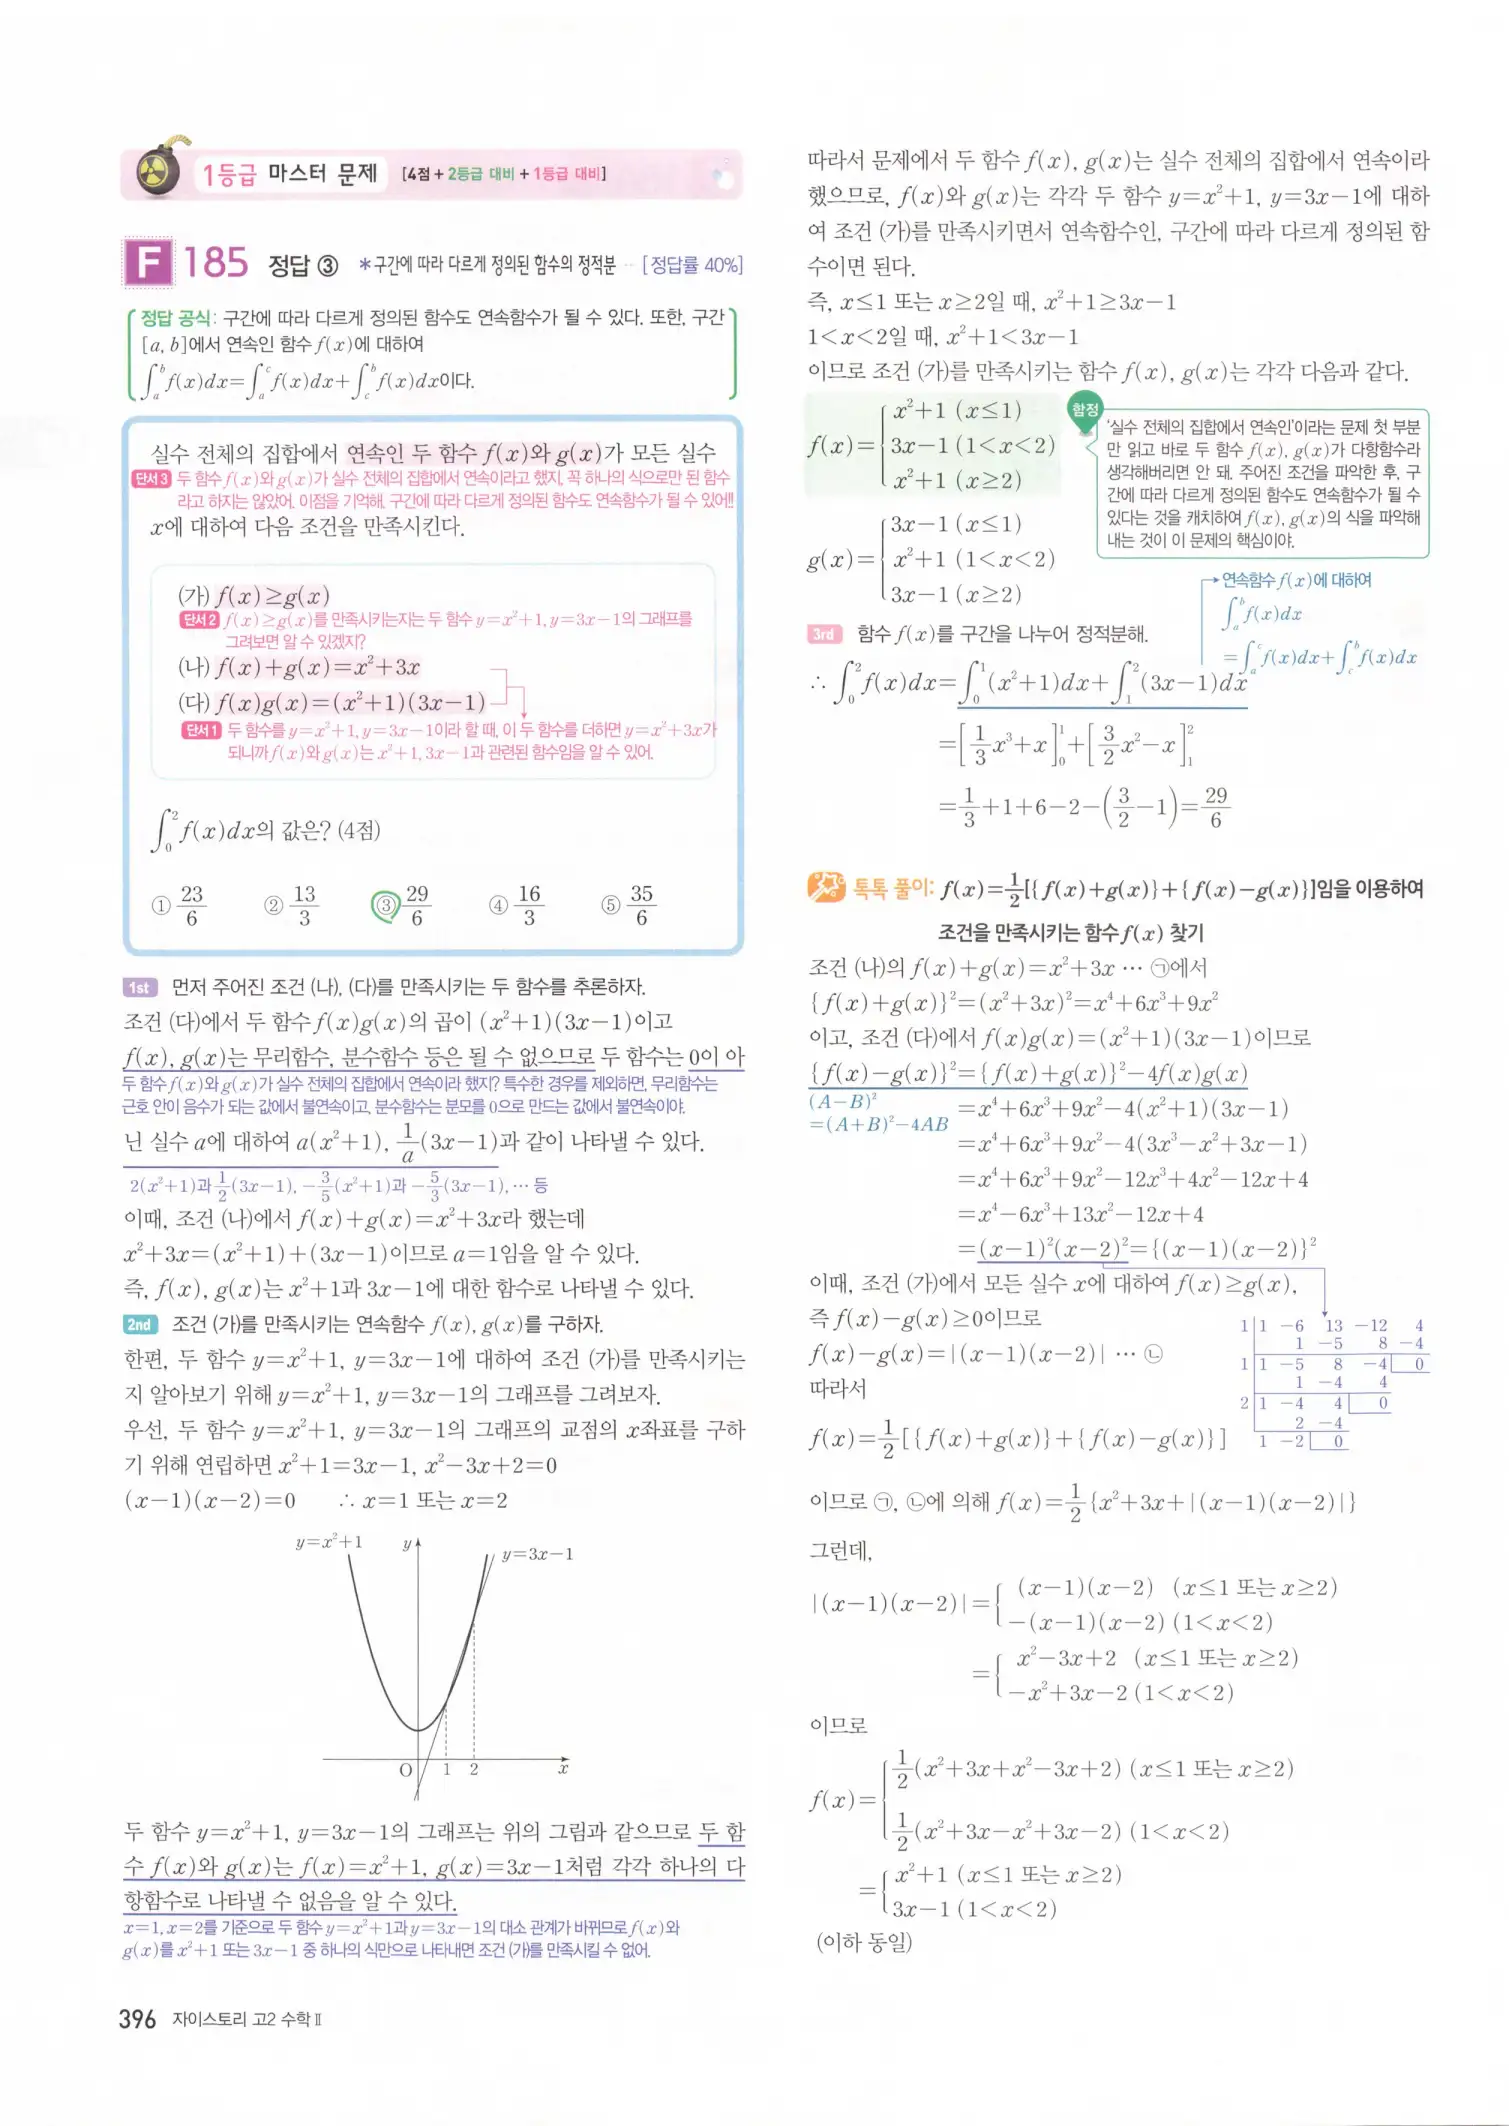 1등급 마스터 문제 [4점+2등급 대비+1등급 대비]
F 185 정답 ③ *구간에 따라 다르게 정의된 함수의 정적분 [정답률 40%]
정답 공식: 구간에 따라 다르게 정의된 함수도 연속함수가 될 수 있다. 또한, 구간
[a, b]에서 연속인 함수 f(x)에 대하여
∫_a^b f(x)dx=∫_a^c f(x)dx+∫_c^b f(x)dx이다.
실수 전체의 집합에서 연속인 두 함수 f(x)와 g(x)가 모든 실수
단서3 두 함수 f(x)와 g(x)가 실수 전체의 집합에서 연속이라고 했지, 꼭 하나의 식으로만 된 함수
라고 하지는 않았어. 이점을 기억해. 구간에 따라 다르게 정의된 함수도 연속함수가 될 수 있어!!
x에 대하여 다음 조건을 만족시킨다.
(가) f(x)≥g(x)
단서2 f(x)≥g(x)를 만족시키는지는 두 함수 y=x²+1, y=3x-1의 그래프를
그려보면 알 수 있겠지?
(나) f(x)+g(x)=x²+3x
(다) f(x)g(x)=(x²+1)(3x-1)
단서1 두 함수를 y=x²+1, y=3x-1이라 할 때, 이 두 함수를 더하면 y=x²+3x가
되니까 f(x)와 g(x)는 x²+1, 3x-1과 관련된 함수임을 알 수 있어.
∫_0^2 f(x)dx의 값은? (4점)
① 23/6 ② 13/3 ③ 29/6 ④ 16/3 ⑤ 35/6
1st 먼저 주어진 조건 (나), (다)를 만족시키는 두 함수를 추론하자.
조건 (다)에서 두 함수 f(x)g(x)의 곱이 (x²+1)(3x-1)이고
f(x), g(x)는 무리함수, 분수함수 등은 될 수 없으므로 두 함수는 0이 아
두 함수 f(x)와 g(x)가 실수 전체의 집합에서 연속이라 했지? 특수한 경우를 제외하면, 무리함수는
근호 안이 음수가 되는 값에서 불연속이고, 분수함수는 분모를 0으로 만드는 값에서 불연속이야.
닌 실수 a에 대하여 a(x²+1), 1/a(3x-1)과 같이 나타낼 수 있다.
2(x²+1)과 1/2(3x-1), -3/5(x²+1)과 -5/3(3x-1), … 등
이때, 조건 (나)에서 f(x)+g(x)=x²+3x라 했는데
x²+3x=(x²+1)+(3x-1)이므로 a=1임을 알 수 있다.
즉, f(x), g(x)는 x²+1과 3x-1에 대한 함수로 나타낼 수 있다.
2nd 조건 (가)를 만족시키는 연속함수 f(x), g(x)를 구하자.
한편, 두 함수 y=x²+1, y=3x-1에 대하여 조건 (가)를 만족시키는
지 알아보기 위해 y=x²+1, y=3x-1의 그래프를 그려보자.
우선, 두 함수 y=x²+1, y=3x-1의 그래프의 교점의 x좌표를 구하
기 위해 연립하면 x²+1=3x-1, x²-3x+2=0
(x-1)(x-2)=0 ∴ x=1 또는 x=2
y=x²+1 y y=3x-1
O 1 2 x
두 함수 y=x²+1, y=3x-1의 그래프는 위의 그림과 같으므로 두 함
수 f(x)와 g(x)는 f(x)=x²+1, g(x)=3x-1처럼 각각 하나의 다
항함수로 나타낼 수 없음을 알 수 있다.
x=1, x=2를 기준으로 두 함수 y=x²+1과 y=3x-1의 대소 관계가 바뀌므로 f(x)와
g(x)를 x²+1 또는 3x-1 중 하나의 식만으로 나타내면 조건 (가)를 만족시킬 수 없어.
396 자이스토리 고2 수학Ⅱ
따라서 문제에서 두 함수 f(x), g(x)는 실수 전체의 집합에서 연속이라
했으므로, f(x)와 g(x)는 각각 두 함수 y=x²+1, y=3x-1에 대하
여 조건 (가)를 만족시키면서 연속함수인, 구간에 따라 다르게 정의된 함
수이면 된다.
즉, x≤1 또는 x≥2일 때, x²+1≥3x-1
1<x<2일 때, x²+1<3x-1
이므로 조건 (가)를 만족시키는 함수 f(x), g(x)는 각각 다음과 같다.
x²+1 (x≤1)
f(x)={ 3x-1 (1<x<2)
x²+1 (x≥2)
함정
'실수 전체의 집합에서 연속인'이라는 문제 첫 부분
만 읽고 바로 두 함수 f(x), g(x)가 다항함수라
생각해버리면 안 돼. 주어진 조건을 파악한 후, 구
간에 따라 다르게 정의된 함수도 연속함수가 될 수
있다는 것을 캐치하여 f(x), g(x)의 식을 파악해
내는 것이 이 문제의 핵심이야.
3x-1 (x≤1)
g(x)={ x²+1 (1<x<2)
3x-1 (x≥2)
연속함수 f(x)에 대하여
∫_a^b f(x)dx
=∫_a^c f(x)dx+∫_c^b f(x)dx
3rd 함수 f(x)를 구간을 나누어 정적분해.
∴ ∫_0^2 f(x)dx=∫_0^1 (x²+1)dx+∫_1^2 (3x-1)dx
=[1/3x³+x]_0^1+[3/2x²-x]_1^2
=1/3+1+6-2-(3/2-1)=29/6
톡톡 풀이: f(x)=1/2[{f(x)+g(x)}+{f(x)-g(x)}]임을 이용하여
조건을 만족시키는 함수 f(x) 찾기
조건 (나)의 f(x)+g(x)=x²+3x … ㉠에서
{f(x)+g(x)}²=(x²+3x)²=x⁴+6x³+9x²
이고, 조건 (다)에서 f(x)g(x)=(x²+1)(3x-1)이므로
{f(x)-g(x)}²={f(x)+g(x)}²-4f(x)g(x)
(A-B)²
=(A+B)²-4AB
=x⁴+6x³+9x²-4(x²+1)(3x-1)
=x⁴+6x³+9x²-4(3x³-x²+3x-1)
=x⁴+6x³+9x²-12x³+4x²-12x+4
=x⁴-6x³+13x²-12x+4
=(x-1)²(x-2)²={(x-1)(x-2)}²
이때, 조건 (가)에서 모든 실수 x에 대하여 f(x)≥g(x),
즉 f(x)-g(x)≥0이므로
f(x)-g(x)=|(x-1)(x-2)| … ㉡
따라서
f(x)=1/2[{f(x)+g(x)}+{f(x)-g(x)}]
1 1 -6 13 -12 4
1 -5 8 -4
1 1 -5 8 -4 0
1 -4 4
2 1 -4 4 0
2 -4
1 -2 0
이므로 ㉠, ㉡에 의해 f(x)=1/2{x²+3x+|(x-1)(x-2)|}
그런데,
|(x-1)(x-2)|={ (x-1)(x-2) (x≤1 또는 x≥2)
-(x-1)(x-2) (1<x<2)
={ x²-3x+2 (x≤1 또는 x≥2)
-x²+3x-2 (1<x<2)
이므로
f(x)={ 1/2(x²+3x+x²-3x+2) (x≤1 또는 x≥2)
1/2(x²+3x-x²+3x-2) (1<x<2)
={ x²+1 (x≤1 또는 x≥2)
3x-1 (1<x<2)
(이하 동일)